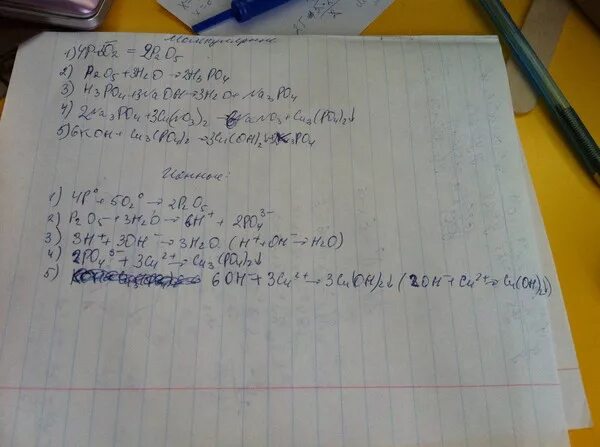 Молекулярные
1) 4P+5O₂ = 2P₂O₅
2) P₂O₅+3H₂O→2H₃PO₄
3) H₃PO₄+3NaOH→3H₂O+Na₃PO₄
4) 2Na₃PO₄+3Cu(NO₃)₂→6NaNO₃+Cu₃(PO₄)₂↓
5) 6KOH+Cu₃(PO₄)₂→3Cu(OH)₂↓+2K₃PO₄
Ионные:
1) 4P⁰+5O₂⁰→2P₂O₅
2) P₂O₅+3H₂O→6H⁺+2PO₄³⁻
3) 3H⁺+3OH⁻→3H₂O (H⁺+OH⁻→H₂O)
4) 2PO₄³⁻+3Cu²⁺→Cu₃(PO₄)₂↓
5) 6OH⁻+3Cu²⁺→3Cu(OH)₂↓ (2OH⁻+Cu²⁺→Cu(OH)₂↓)